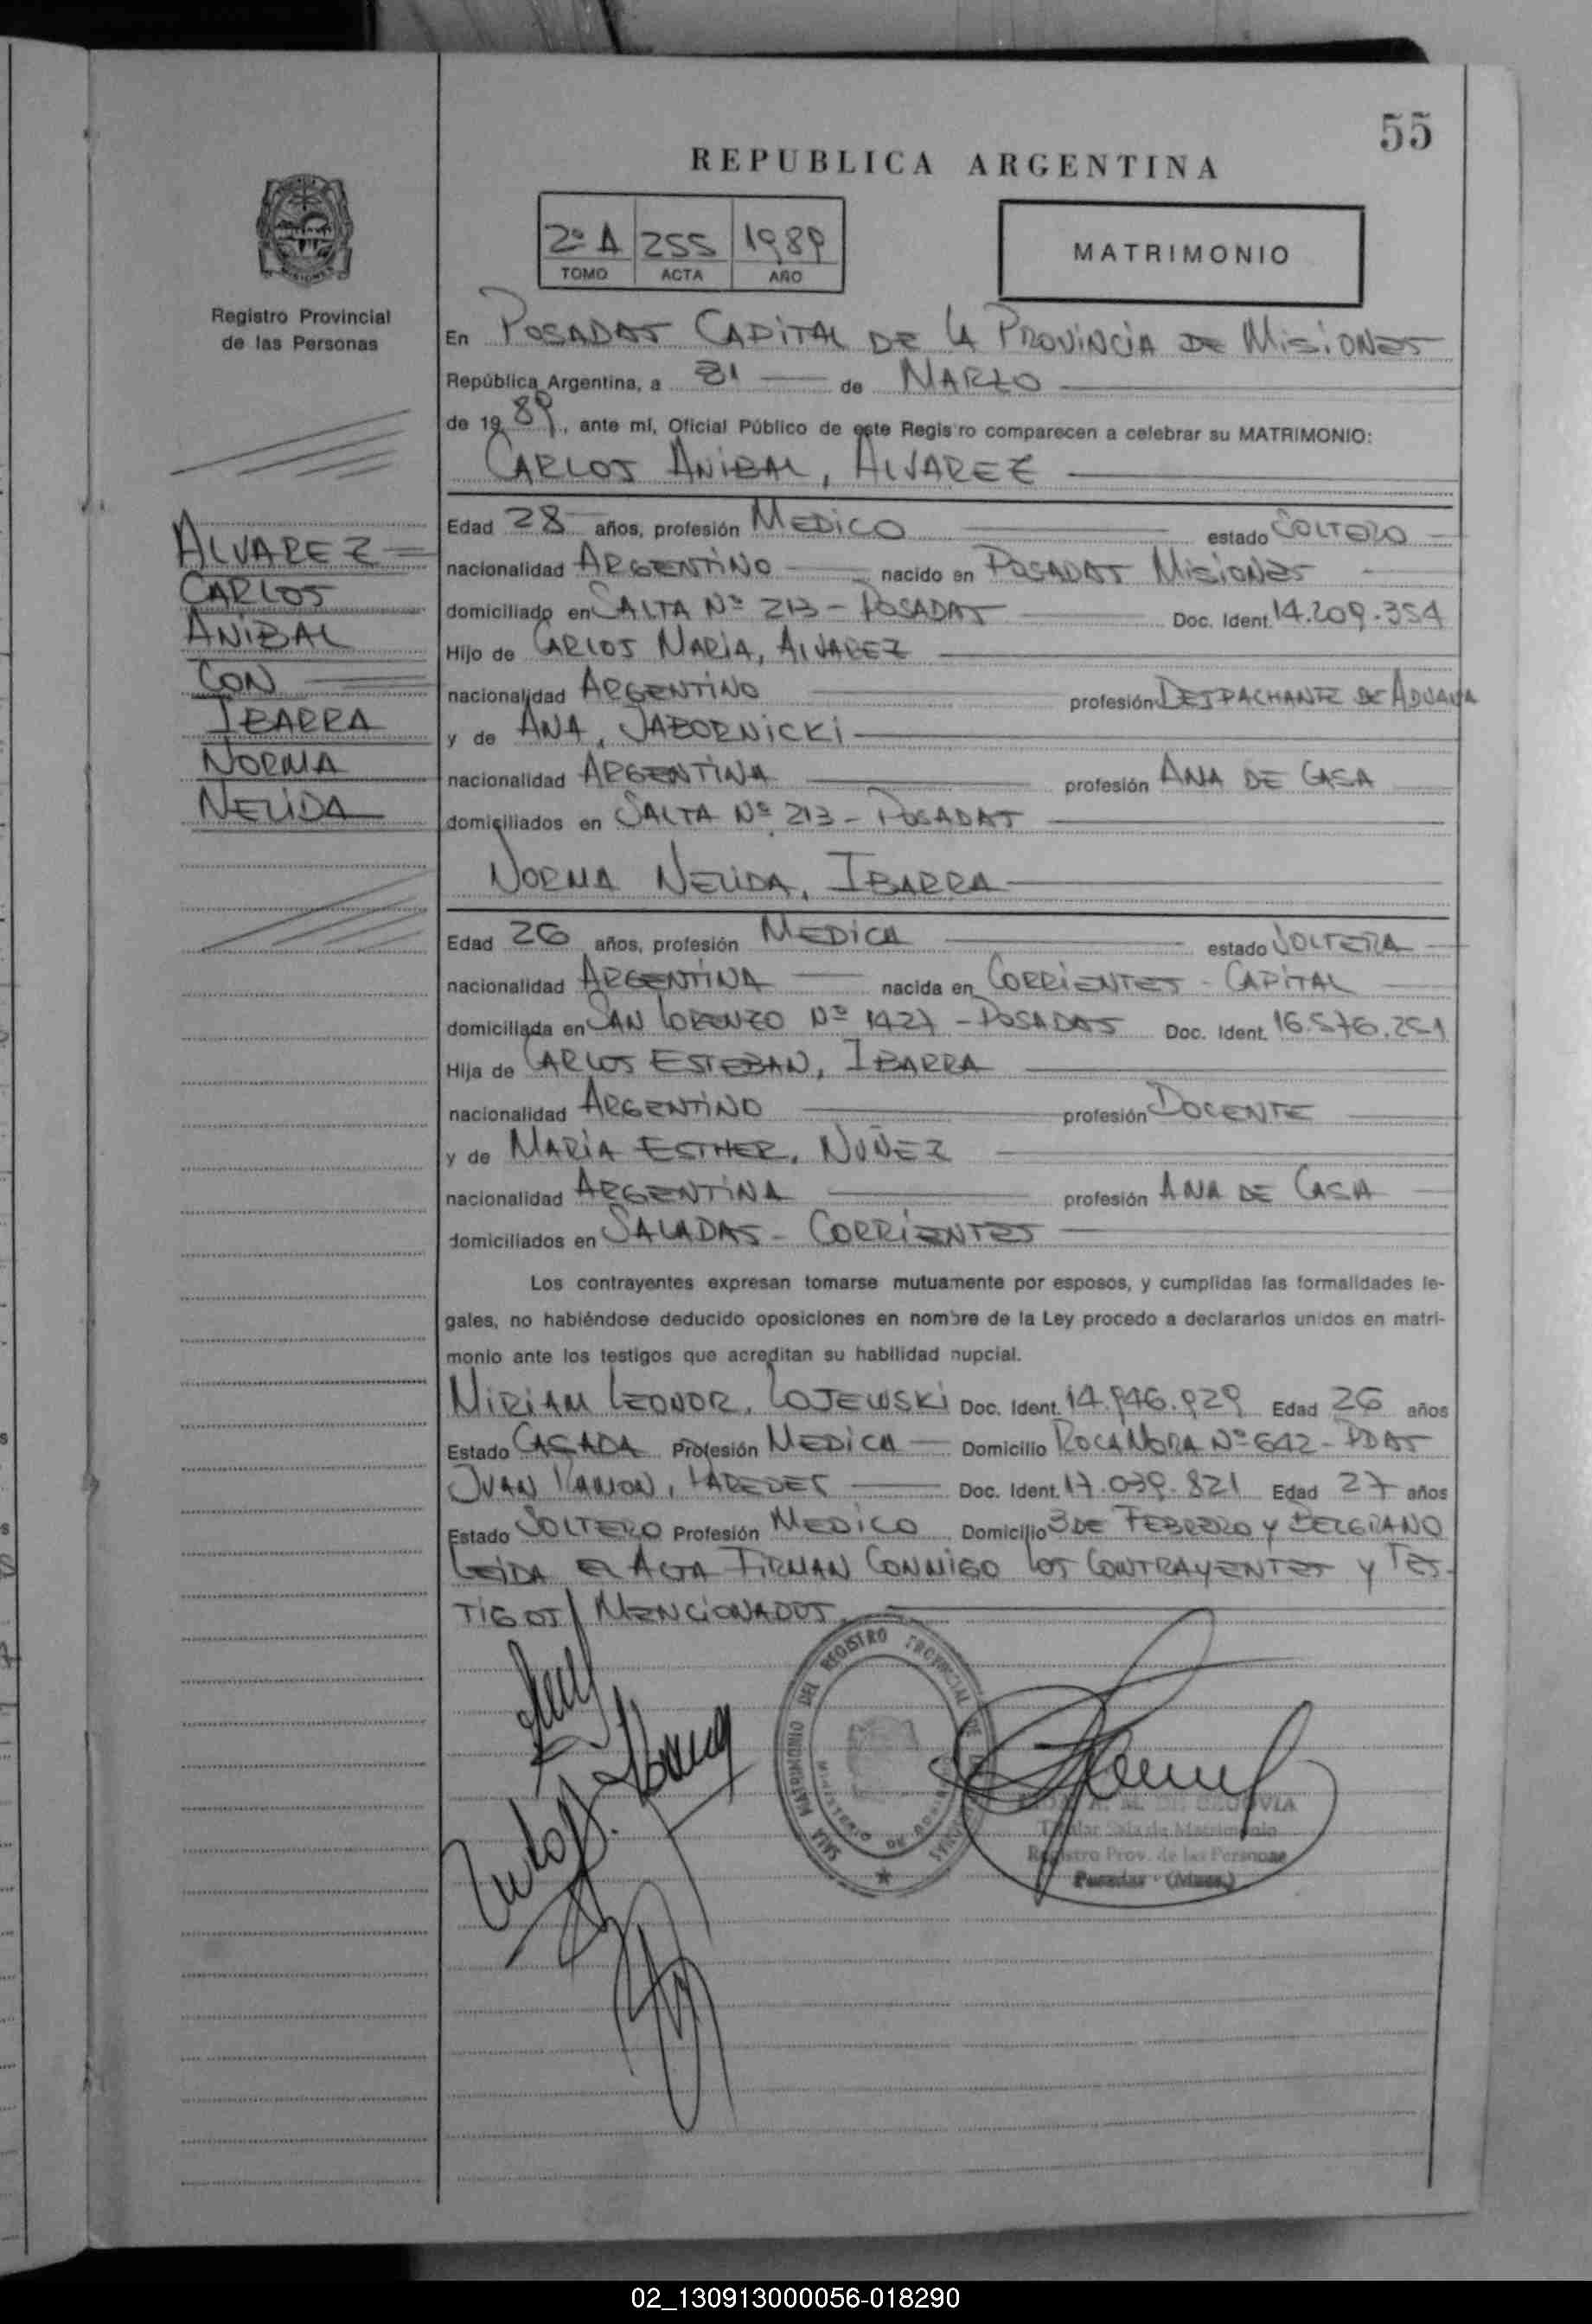 55
REPUBLICA ARGENTINA
2º A 255 1989
TOMO ACTA AÑO
MATRIMONIO
Registro Provincial
de las Personas
En POSADAS CAPITAL DE LA PROVINCIA DE MISIONES
República Argentina, a 31 de MARZO
de 1989, ante mí, Oficial Público de este Registro comparecen a celebrar su MATRIMONIO:
CARLOS ANIBAL, ALVAREZ
ALVAREZ
CARLOS
ANIBAL
CON
IBARRA
NORMA
NELIDA
Edad 28 años, profesión MEDICO estado SOLTERO
nacionalidad ARGENTINO nacido en POSADAS MISIONES
domiciliado en SALTA Nº 213 - POSADAS Doc. Ident. 14.209.354
Hijo de CARLOS MARIA, ALVAREZ
nacionalidad ARGENTINO profesión DESPACHANTE DE ADUANA
y de ANA, JABORNICKI
nacionalidad ARGENTINA profesión AMA DE CASA
domiciliados en SALTA Nº 213 - POSADAS
NORMA NELIDA, IBARRA
Edad 26 años, profesión MEDICA estado SOLTERA
nacionalidad ARGENTINA nacida en CORRIENTES - CAPITAL
domiciliada en SAN LORENZO Nº 1427 - POSADAS Doc. Ident. 16.576.251
Hija de CARLOS ESTEBAN, IBARRA
nacionalidad ARGENTINO profesión DOCENTE
y de MARIA ESTHER, NUÑEZ
nacionalidad ARGENTINA profesión AMA DE CASA
domiciliados en SALADAS - CORRIENTES
Los contrayentes expresan tomarse mutuamente por esposos, y cumplidas las formalidades le-
gales, no habiéndose deducido oposiciones en nombre de la Ley procedo a declararlos unidos en matri-
monio ante los testigos que acreditan su habilidad nupcial.
MIRIAM LEONOR, LOJEWSKI Doc. Ident. 14.946.929 Edad 26 años
Estado CASADA Profesión MEDICA Domicilio ROCAMORA Nº 642 - PDAS
JUAN RAMON, PAREDES Doc. Ident. 17.039.821 Edad 27 años
Estado SOLTERO Profesión MEDICO Domicilio 3 DE FEBRERO Y BELGRANO
LEIDA EL ACTA FIRMAN CONMIGO LOS CONTRAYENTES Y TES-
TIGOS MENCIONADOS
SALA MATRIMONIO DEL REGISTRO PROVINCIAL DE
MINISTERIO DE
SEGOVIA
Titular Sala de Matrimonio
Registro Prov. de las Personas
Posadas (Mnes.)
02_130913000056-018290